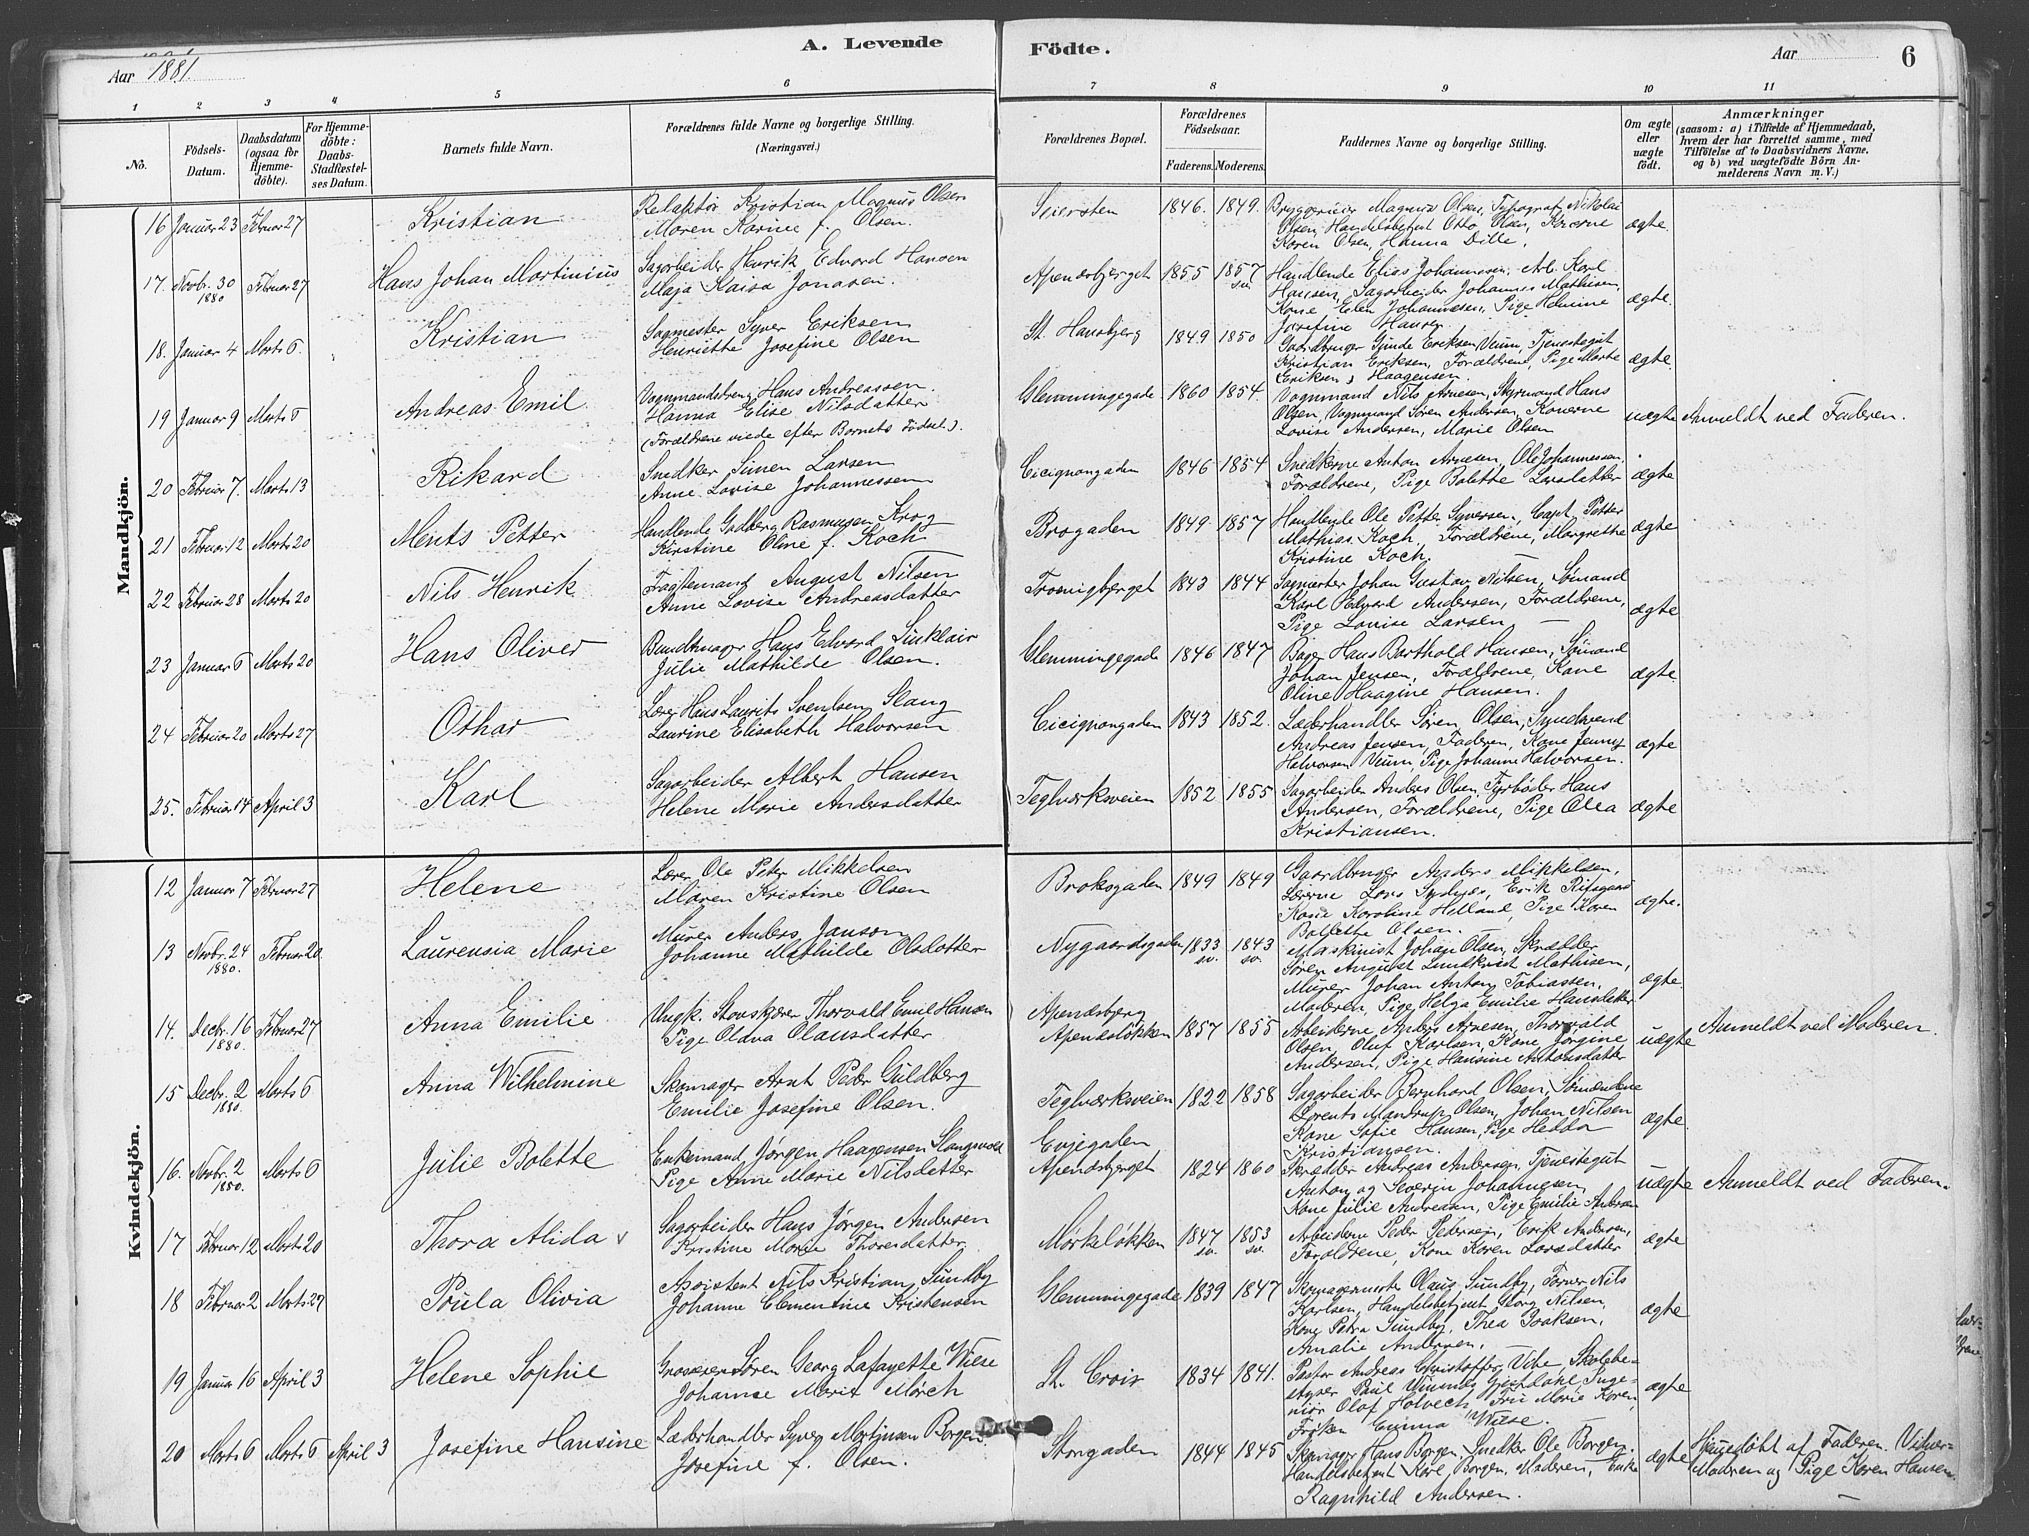 A. Levende Födte.
Aar 1881.
Aar
6
1 2 3 4 5 6 7 8 9 10 11
No.
Födsels-Datum.
Daabsdatum (ogsaa for Hjemme-döbte).
For Hjemme-döbte: Daabs-Stadfæstel-ses Datum.
Barnets fulde Navn.
Forældrenes fulde Navne og borgerlige Stilling. (Næringsvei.)
Forældrenes Bopæl.
Forældrenes Födselsaar.
Faderens. Moderens.
Faddernes Navne og borgerlige Stilling.
Om ægte eller uægte födt.
Anmærkninger
(saasom: a) i Tilfælde af Hjemmedaab, hvem der har forrettet samme, med Tilföielse af to Daabsvidners Navne. og b) ved uægtefödte Börn An-melderens Navn m. V.)
Mandkjön.
16 Januar 23 Februar 27 Kristian Redaktör Kristian Magnus Olsen
Maren Karine f. Olsen. Seiersten 1846. 1849. Bryggerieier Magnus Olsen, Typograf Nikolai
Olsen, Handelsbetjent Otto Olsen, Konerne
Karen Olsen, Hanna Dille. ægte.
17. Novbr. 30 1880 Februar 27 Hans Johan Martinius Sagarbeider Henrik Edvard Hansen
Maja Kaisa Jonasen. Apenæsbjerget 1855 1857 sv. Handlende Elias Johannesen, Arb. Karl
Hansen, Sagarbeider Johannes Mathisen,
Kone Elen Johannesen, Pige Helmine
Josefine Hansen ægte.
18. Januar 4 Marts 6. Kristian Sagmester Syver Eriksen
Henriette Josefine Olsen St. Hansbjerg 1849 1850 Gaardbruger Gunde Eriksen Veum, Tjenestegut
Kristian Eriksen, Forældrene, Pige Marte
Eriksen, Haagensen. ægte.
19 Januar 9 Marts 6 Andreas Emil Vognmandsdreng Hans Andreassen.
Hanna Elise Nilsdatter
(Forældrene viede efter Barnets Födsel). Glemmingegade 1860 1854. Vognmand Nils Arnesen, Styrmand Hans
Olsen, Vognmand Sören Andersen, Konerne
Lovise Andersen, Marie Olsen uægte Anmeldt ved Faderen.
20 Februar 7. Marts 13 Rikard Snedker Simen Larsen
Anne Lovise Johannessen Cicignongaden 1846 1854 Snedkerne Anton Arnesen, Ole Johannessen,
Forældrene, Pige Bolette Larsdatter ægte
21 Februar 12 Marts 20 Ments Petter Handlende Gudberg Rasmusen Krog
Kirstine Oline f. Koch Brogaden 1849. 1857 Handlende Ole Petter Syversen, Capt. Petter
Mathias Koch, Forældrene, Margrethe
Kristine Koch. ægte
22 Februar 28 Marts 20 Nils Henrik Fragtemand August Nilsen
Anne Lovise Andreasdatter Trosvigbjerget 1843 1844 Sagmester Johan Gustav Nilsen, Sömand
Karl Edvard Andersen, Forældrene,
Pige Lovise Larsen ægte
23 Januar 6 Marts 20 Hans Oliver Bundtmager Hans Edvard Sinklair
Julie Mathilde Olsen. Glemmingegade 1846 1847 Bager Hans Barthold Hansen, Sömand
Johan Jensen, Forældrene, Kone
Oline Haagine Hansen. ægte.
24 Februar 20 Marts 27 Othar Lærer Hans Laurits Svendsen Stang
Laurine Elisabeth Halvorsen Cicignongaden 1843 1852. Læderhandler Sören Olsen, Syndsvend
Andreas Jensen, Faderen, Kone Jenny
Halvorsen Veum, Pige Johanne Halvorsen. ægte
25. Februar 14 April 3 Karl Sagarbeider Albert Hansen
Helene Marie Andersdatter Teglværksveien 1852 1855 Sagarbeider Anders Olsen, Fyrböder Hans
Andersen, Forældrene, Pige Olea
Kristiansen. ægte
Kvindekjön.
12 Januar 7 Februar 27 Helene Lærer Ole Peter Mikkelsen
Maren Kristine Olsen Broksgaden 1849 1849 Gaardbruger Anders Mikkelsen,
Lærerne Lars Sydnæs, Erik Rifsgaard
Kone Karoline Helland, Pige Karen
Bollette Olsen. ægte.
13 Novbr. 24 1880. Februar 20 Laurensia Marie Murer Anders Janson
Johanne Mathilde Olsdatter Nygaardsgaden 1833 sv. 1843 sv. Maskinist Johan Olsen, Skrædder
Sören August Lundkvist Mathisen,
Murer Johan Anton Tobiassen,
Moderen, Pige Helga Emilie Hansdatter ægte
14. Decbr. 16 1880. Februar 27 Anna Emilie Ungk. Stenskjærer Thorvald Emil Hansen
Pige Olava Olausdatter Apenæsbjerg
Apenæslökken 1857 1855 Arbeiderne Anders Arnesen, Thorvald
Olsen, Oluf Karlsen, Kone Jörgine
Andersen, Pige Hansine Antonsdatter uægte Anmeldt ved Moderen.
15 Decbr. 2 1880. Marts 6 Anna Wilhelmine Skomager Arnt Peder Guldberg
Emilie Josefine Olsen. Teglværksveien 1822 1858 Sagarbeider Bernhard Olsen, Sömændene
Lorents Mandrup Olsen, Johan Nilsen
Kone Sofie Hansen, Pige Hedda
Kristiansen. ægte.
16. Novbr. 2 1880. Marts 6 Julie Bolette Enkemand Jörgen Haagensen Slangsvold
Pige Anne Marie Nilsdatter Evjegaden
Apenæsbjerget 1824 1860 Skrædder Andreas Andersen, Tjenestegut
Anton og Severin Johannesen,
Kone Julie Andreasen, Pige Emilie Andersen uægte Anmeldt ved Faderen.
17 Februar 12 Marts 20 Thora Alida Sagarbeider Hans Jörgen Andersen
Kristine Marie Thoresdatter Mörkelökken 1847 sv. 1853 sv. Arbeiderne Peder Pedersen, Erik Andersen,
Forældrene, Kone Karen Larsdatter ægte
18 Februar 2 Marts 27 Poula Olivia Assistent Nils Kristian Sundby
Johanne Clementine Kristensen Glemmingegade 1839 1847 Skomagermester Olaus Sundby, Farver Nils
Karlsen, Handelsbetjent Georg Nilsen,
Kone Petra Sundby, Thea Isaksen,
Amalie Andersen. ægte
19 Januar 16 April 3 Helene Sophie Grosserer Sören Georg Lafayette Wiese
Johanne Marie Mörch St. Croix 1834 1841. Pastor Andreas Christoffer Ube, Skolebe-
styrer Paul Vinsnes Gjerdahl, Inge-
niör Olaf Holvech, Fru Marie Koren,
Fröken Emma Wiese. ægte
20 Marts 6 Marts 6 April 3 Josefine Hansine Læderhandler Syver Martinsen Borgen
Josefine f. Olsen. Storgaden 1844 1845 Skomager Hans Borgen, Snedker Ole Borgen.
Handelsbetjent Karl Borgen, Moderen, Enke
Ragnhild Andersen. ægte Hjemmedöbt af Faderen. Vidner:
Modren og Pige Karen Hansen